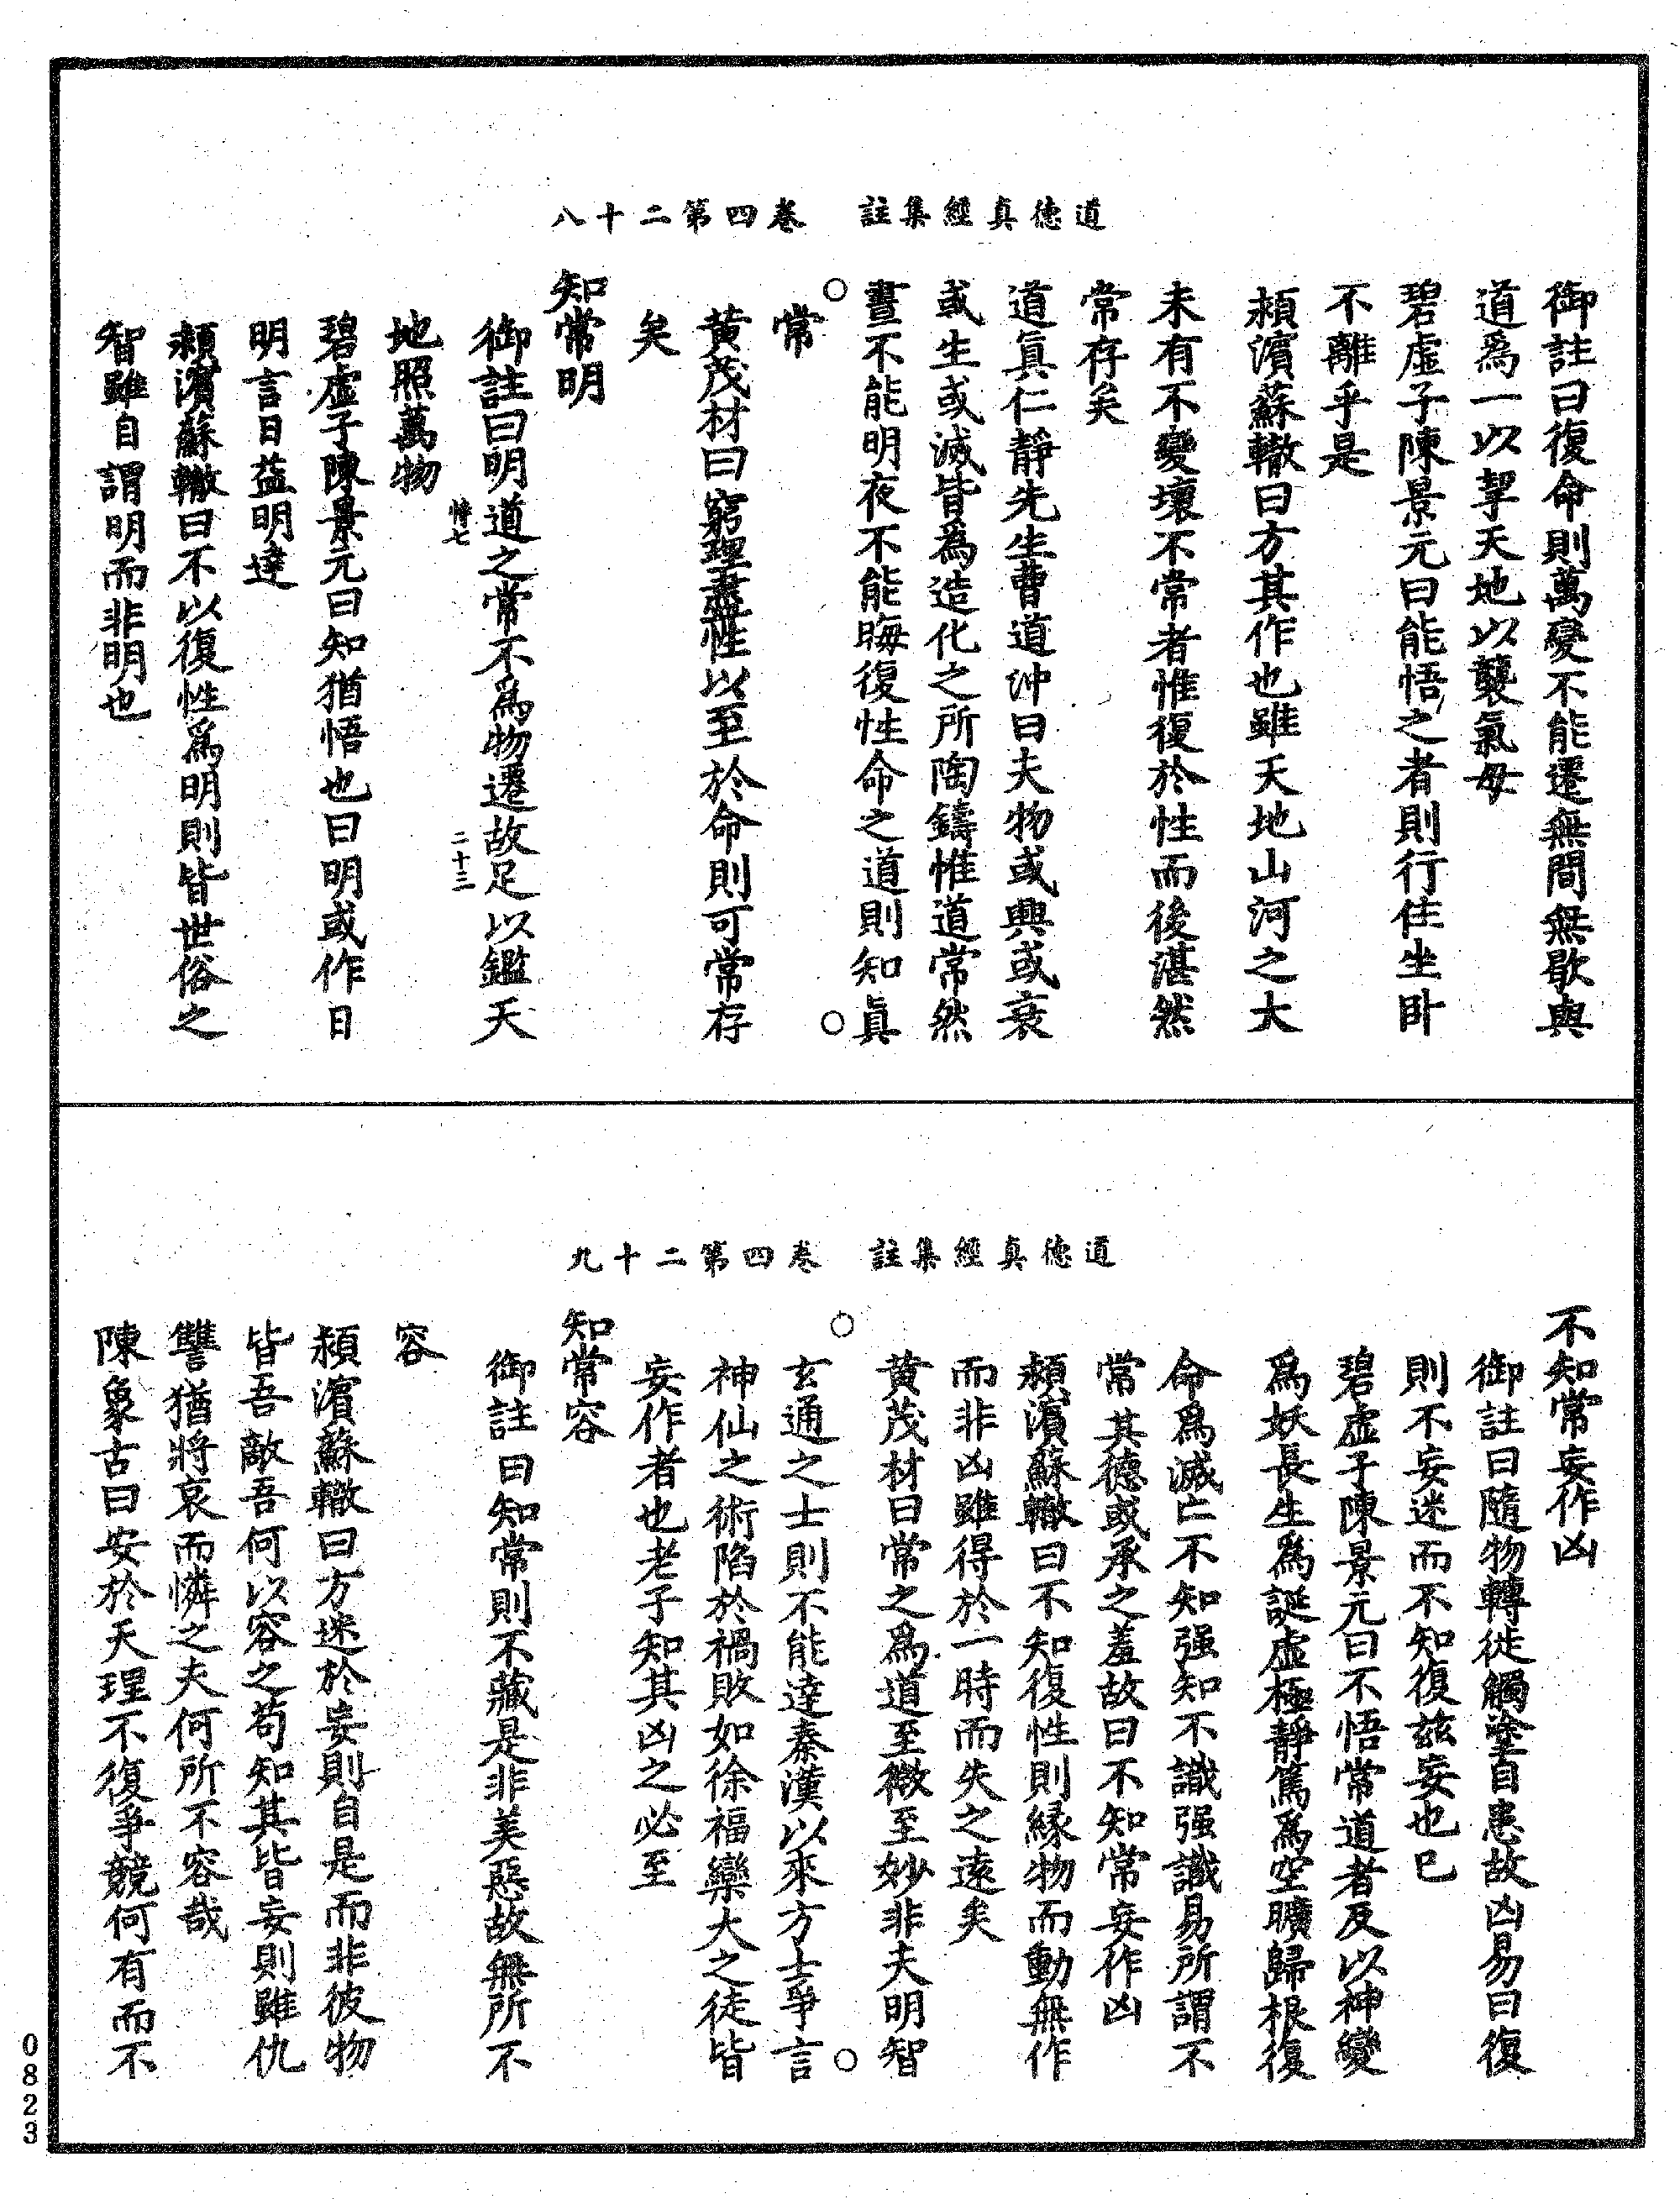 道德真經集註　卷四第二十八
御註曰復命則萬變不能遷無間無歇與
道爲一以挈天地以襲氣母
碧虛子陳景元曰能悟之者則行住坐卧
不離乎是
頴濱蘇轍曰方其作也雖天地山河之大
未有不變壞不常者惟復於性而後湛然
常存矣
道真仁靜先生曹道沖曰夫物或興或衰
或生或滅皆爲造化之所陶鑄惟道常然
晝不能明夜不能晦復性命之道則知眞
常
黄茂材曰窮理盡性以至於命則可常存
矣
知常明
御註曰明道之常不爲物遷故足以鑑天
悖七　二十三
地照萬物
碧虛子陳景元曰知猶悟也曰明或作日
明言日益明達
頴濱蘇轍曰不以復性爲明則皆世俗之
智雖自謂明而非明也
道德真經集註　卷四第二十九
不知常妄作凶
御註曰隨物轉徙觸塗自患故凶易曰復
則不妄迷而不知復茲妄也已
碧虛子陳景元曰不悟常道者反以神變
爲妖長生爲誕虛極靜篤爲空曠歸根復
命爲滅亡不知强知不識强識易所謂不
常其德或承之羞故曰不知常妄作凶
頴濱蘇轍曰不知復性則緣物而動無作
而非凶雖得於一時而失之遠矣
黄茂材曰常之爲道至微至妙非夫明智
玄通之士則不能達秦漢以來方士爭言
神仙之術陷於禍敗如徐福欒大之徒皆
妄作者也老子知其凶之必至
知常容
御註曰知常則不藏是非美惡故無所不
容
頴濱蘇轍曰方迷於妄則自是而非彼物
皆吾敵吾何以容之苟知其皆妄則雖仇
讐猶將哀而憐之夫何所不容哉
陳象古曰安於天理不復爭競何有而不
0823